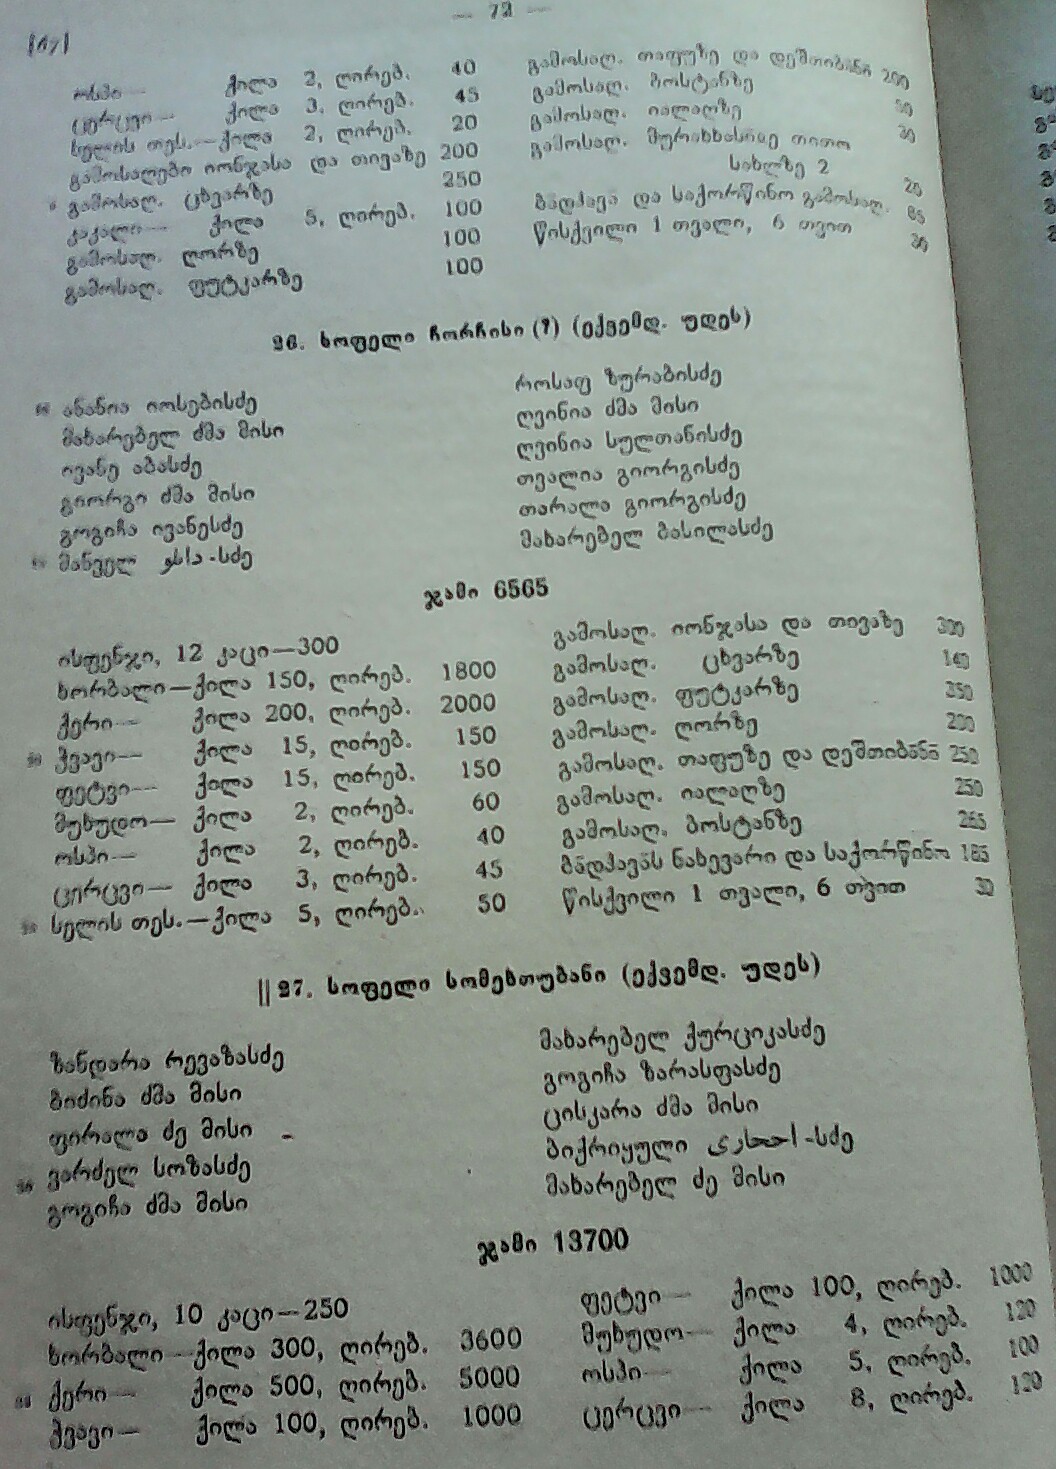 — 72 —
ოსპი— ქილა 2, ღირებ. 40
ცერცვი— ქილა 3, ღირებ. 45
სელის თეს.—ქილა 2, ღირებ. 20
გამოსაღები იონჯასა და თივაზე 200
გამოსაღ. ცხვარზე 250
კაკალი— ქილა 5, ღირებ. 100
გამოსაღ. ღორზე 100
გამოსაღ. ფუტკარზე 100
გამოსაღ. თაფუზე და დეშთიბანი 200
გამოსაღ. ბოსტანზე
გამოსაღ. იალაღზე
გამოსაღ. თითო
სახლზე 2
ბადჰავა და საქორწინო გამოსაღ.
წისქვილი 1 თვალი, 6 თვით 30
26. სოფელი ჩორჩისი (?) (ექვემდ. უდეს)
ანანია იოსებისძე
მახარებელ ძმა მისი
ივანე აბასძე
გიორგი ძმა მისი
გოგიჩა ივანესძე
მანველ -სძე
როსაფ ზურაბისძე
ღვინია ძმა მისი
ღვინია სულთანისძე
თვალია გიორგისძე
თარალა გიორგისძე
მახარებელ ბასილასძე
ჯამი 6565
ისფენჯი, 12 კაცი—300
ხორბალი—ქილა 150, ღირებ. 1800
ქერი— ქილა 200, ღირებ. 2000
ჭვავი— ქილა 15, ღირებ. 150
ფეტვი— ქილა 15, ღირებ. 150
მუხუდო— ქილა 2, ღირებ. 60
ოსპი— ქილა 2, ღირებ. 40
ცერცვი— ქილა 3, ღირებ. 45
სელის თეს.—ქილა 5, ღირებ. 50
გამოსაღ. იონჯასა და თივაზე 300
გამოსაღ. ცხვარზე 140
გამოსაღ. ფუტკარზე 250
გამოსაღ. ღორზე 200
გამოსაღ. თაფუზე და დეშთიბანი 250
გამოსაღ. იალაღზე 250
გამოსაღ. ბოსტანზე 265
ბადჰავას ნახევარი და საქორწინო 185
წისქვილი 1 თვალი, 6 თვით 30
|| 27. სოფელი სომეხთუბანი (ექვემდ. უდეს)
ზანდარა რევაზასძე
ბიძინა ძმა მისი
ფირალა ძე მისი
ვარძელ სოზასძე
გოგიჩა ძმა მისი
მახარებელ ქურციკასძე
გოგიჩა ზარასფასძე
ცისკარა ძმა მისი
ბიქრიყული -სძე
მახარებელ ძე მისი
ჯამი 13700
ისფენჯი, 10 კაცი—250
ხორბალი—ქილა 300, ღირებ. 3600
ქერი— ქილა 500, ღირებ. 5000
ჭვავი— ქილა 100, ღირებ. 1000
ფეტვი— ქილა 100, ღირებ. 1000
მუხუდო— ქილა 4, ღირებ. 120
ოსპი— ქილა 5, ღირებ. 100
ცერცვი— ქილა 8, ღირებ. 120